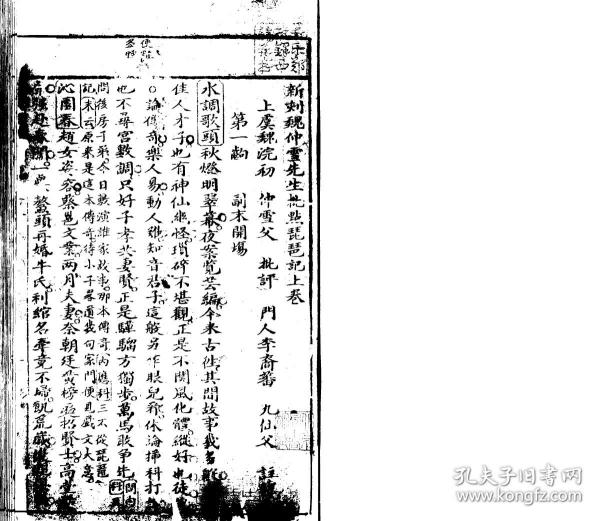 新刻魏仲雪先生批點琵琶記上卷
上虞魏浣初 仲雪父 批評 門人李裔蕃 九仙父 註
第一齣 副末開場
水調歌頭秋燈明翠幕夜案覽芸編今來古徃其間故事幾多般
佳人才子也有神仙幽怪瑣碎不堪觀正是不關風化體縱好也徒
論傳奇樂人易動人難知音君子這般另作眼兒看休論插科打
也不尋宮數調只好子孝共妻賢正是驊騮方獨步萬馬敢爭先問内
問後房子弟今日敷演誰家故事那本傳奇内應科三不從琵琶
記末云原來是這本傳奇待小子畧道幾句家門便見戲文大意
沁園春趙女姿容蔡邕文業兩月夫妻奈朝廷黄榜遍招賢士高堂
鰲頭再婚牛氏利綰名牽竟不歸飢荒歲
孔夫子旧书网
www.kongfz.com